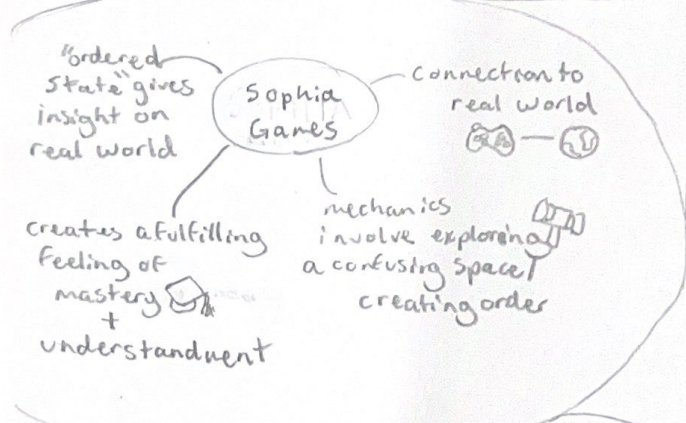 Sophia
Games
"ordered
state" gives
insight on
real world
connection to
real world
creates a fulfilling
feeling of
mastery
+
understandment
mechanics
involve exploring
a confusing space/
creating order